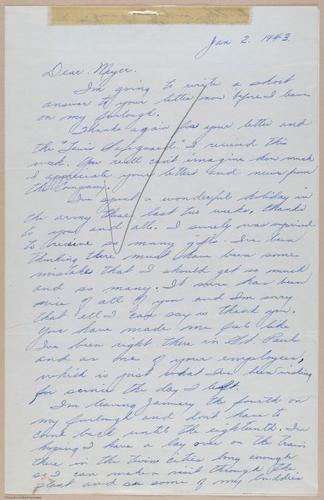 Jan 2. 1943.
Dear Meyer.
I'm going to write a short
answer to your letter now before I leave
on my furlough.
Thanks again for your letter and
the "Twin I received this
week. You really can't imagine how much
I appreciate your letters and news from
the Company.
I've spent a wonderful holiday in
the army these last two weeks, thanks
to you and all. I surely was surprised
to receive so many gifts. I've been
thinking there must have been some
mistakes that I should get so much
and so many. It sure has been
nice of all of you and I'm sorry
that all I can say is thank you.
You have made me feel like
I've been right there in St. Paul
and as one of your employees,
which is just what I've been wishing
for service the day I left.
I'm leaving January the fourth on
my furlough and don't have to
come back until the eighteenth. I'm
hoping I have a lay over on the train
there in the Twin Cities long enough
so I can make a visit through the
plant and see some of my buddies